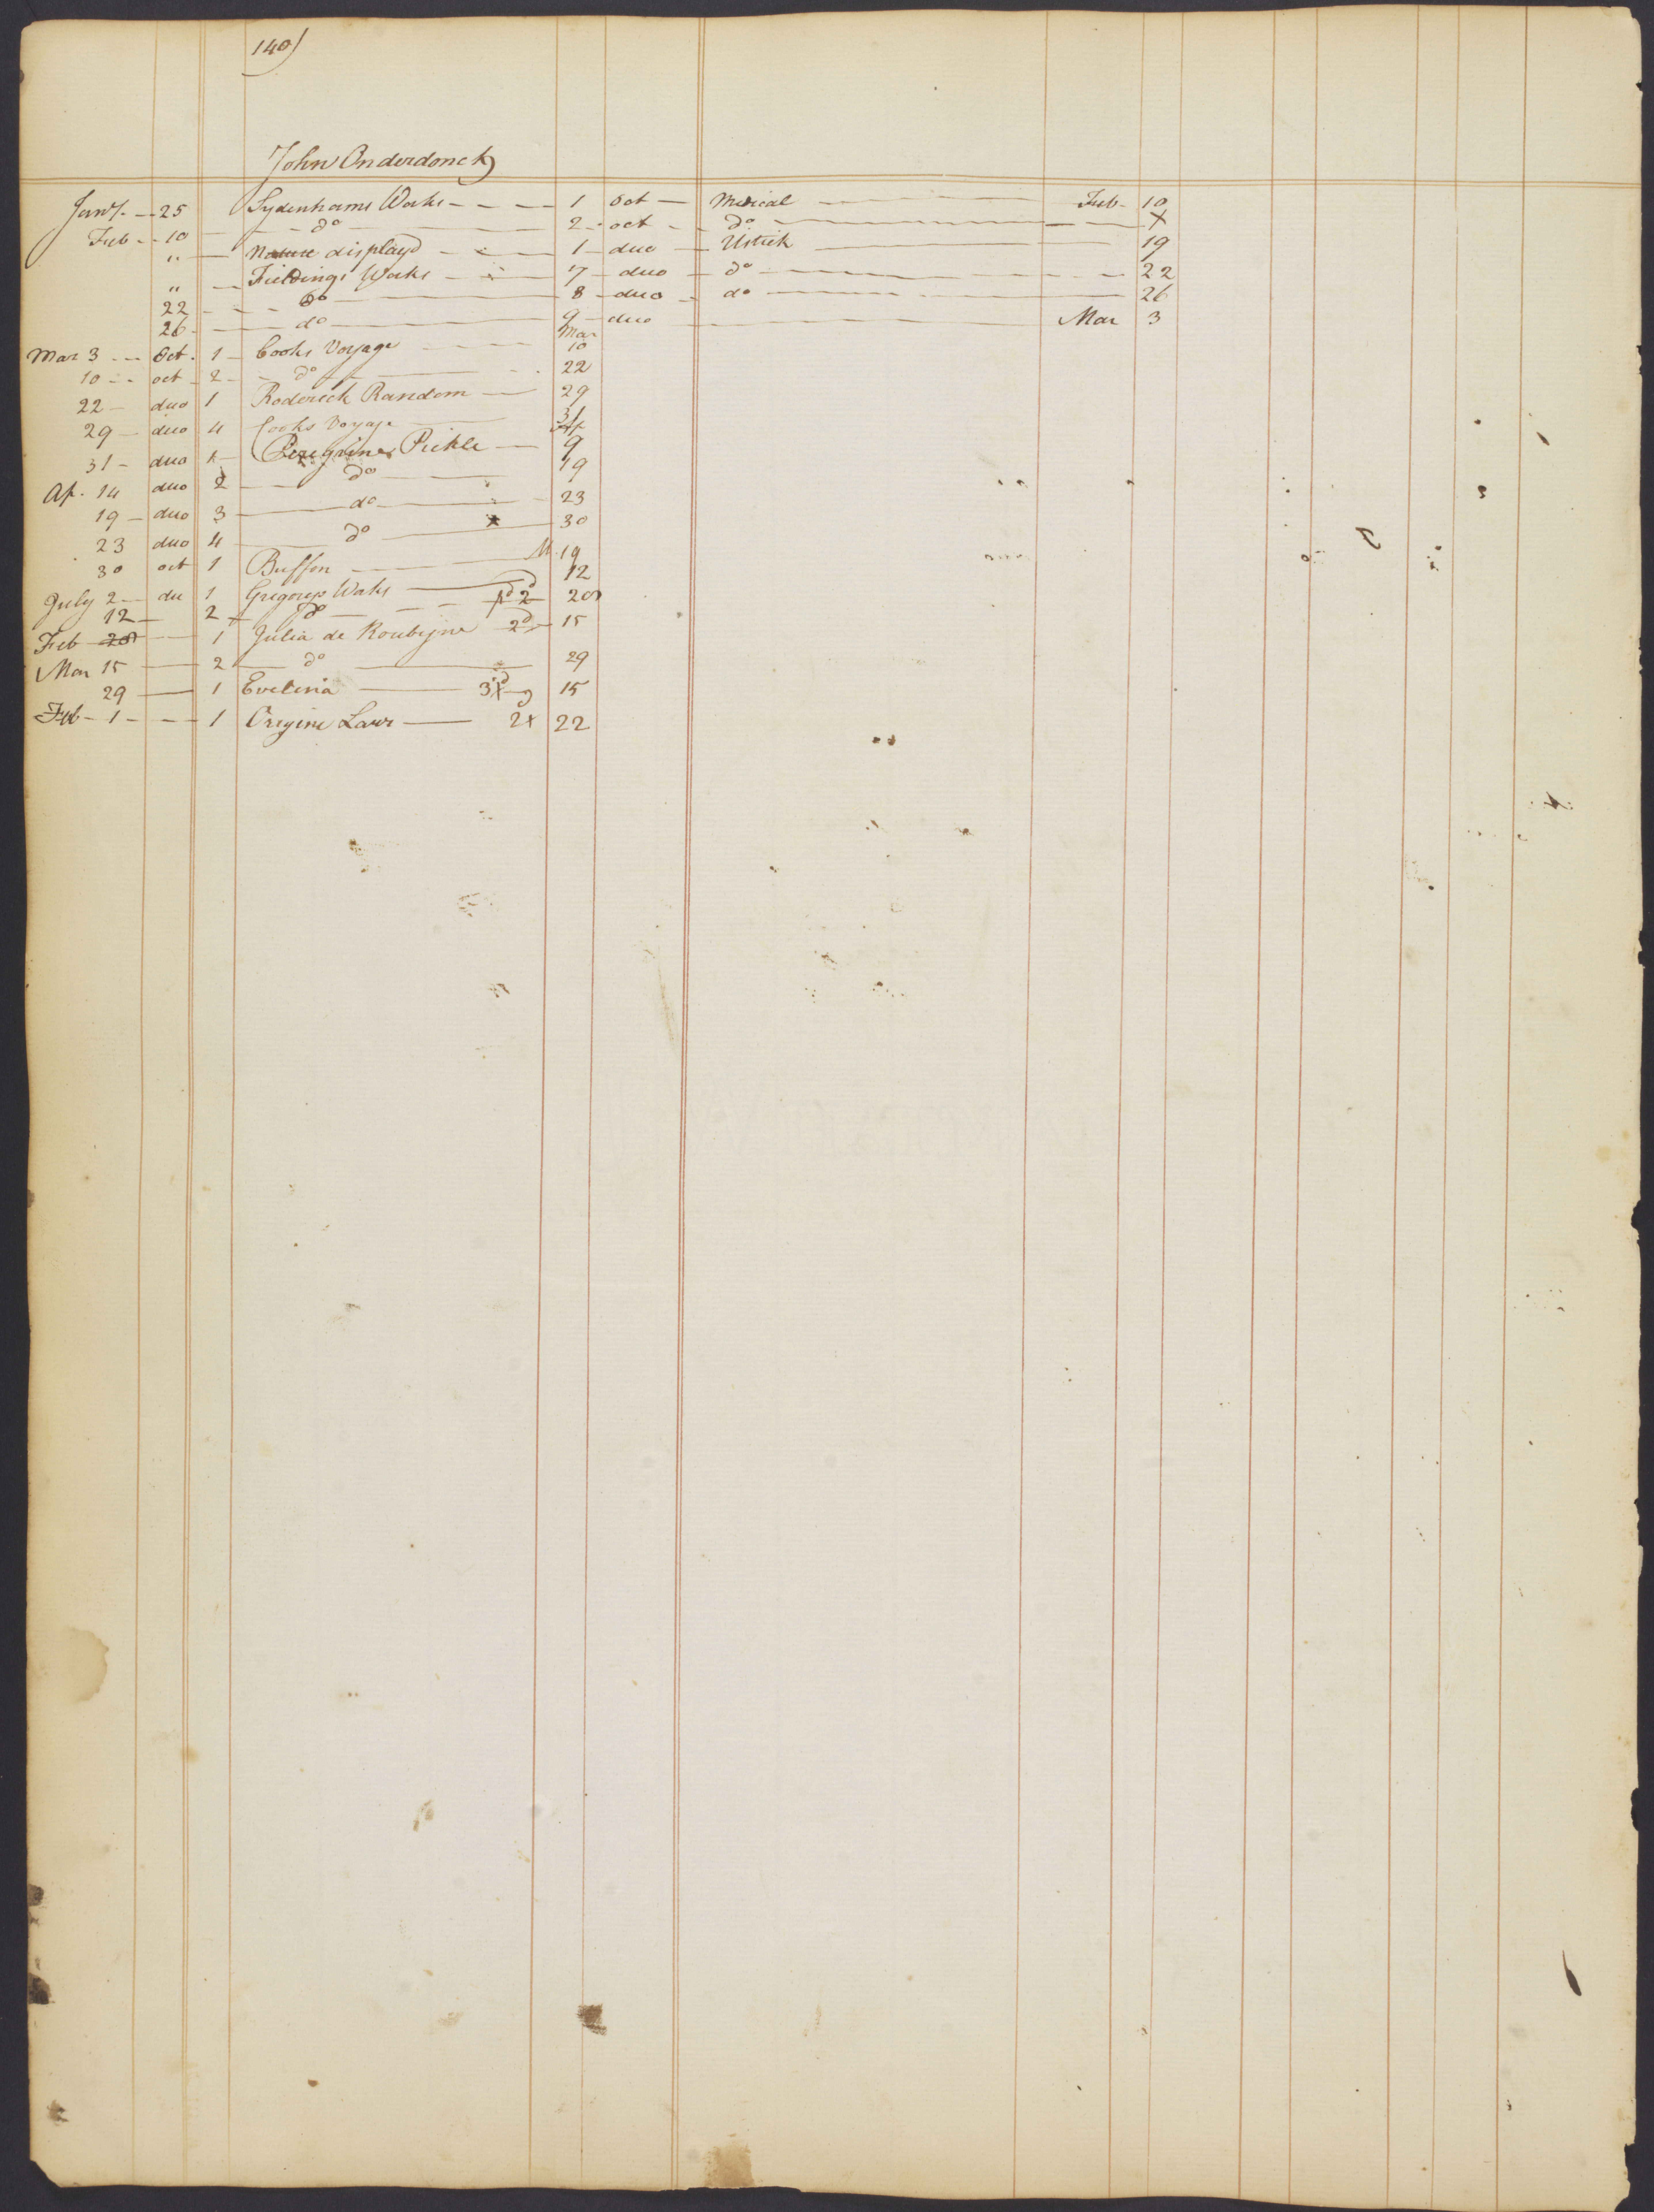 140)
John Onderdonck
Jany. 25 Sydenhams Works 1 Oct Medical Feb. 10
Feb 10 do 2 oct do X
" Nature displayd 1 duo Ustick 19
" Fieldings Works 7 duo do 22
22 do 8 duo do 26
26 do 9 duo Mar 3
Mar 3 Oct. 1 Cooks Voyage Mar 10
10 oct 2 do 22
22 duo 1 Roderick Random 29
29 duo 4 Cooks Voyage 31
31 duo 1 Peregrine Pickle Ap 9
Ap. 14 duo 2 do 19
19 duo 3 do 23
23 duo 4 do 30
30 oct 1 Buffon M 19
July 2 du 1 Gregorys Works 12
12 2 do pd 2 20
Feb 20 1 Julia de Roubigne 2d 15
Mar 15 2 do 29
29 1 Evelina 3X 15
Feb 1 1 Origine Laws 2X 22